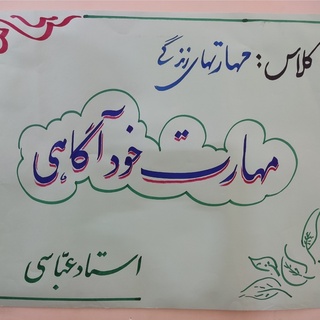 کلاس: مهارتهای زندگی
مهارت خودآگاهی
استاد عباسی